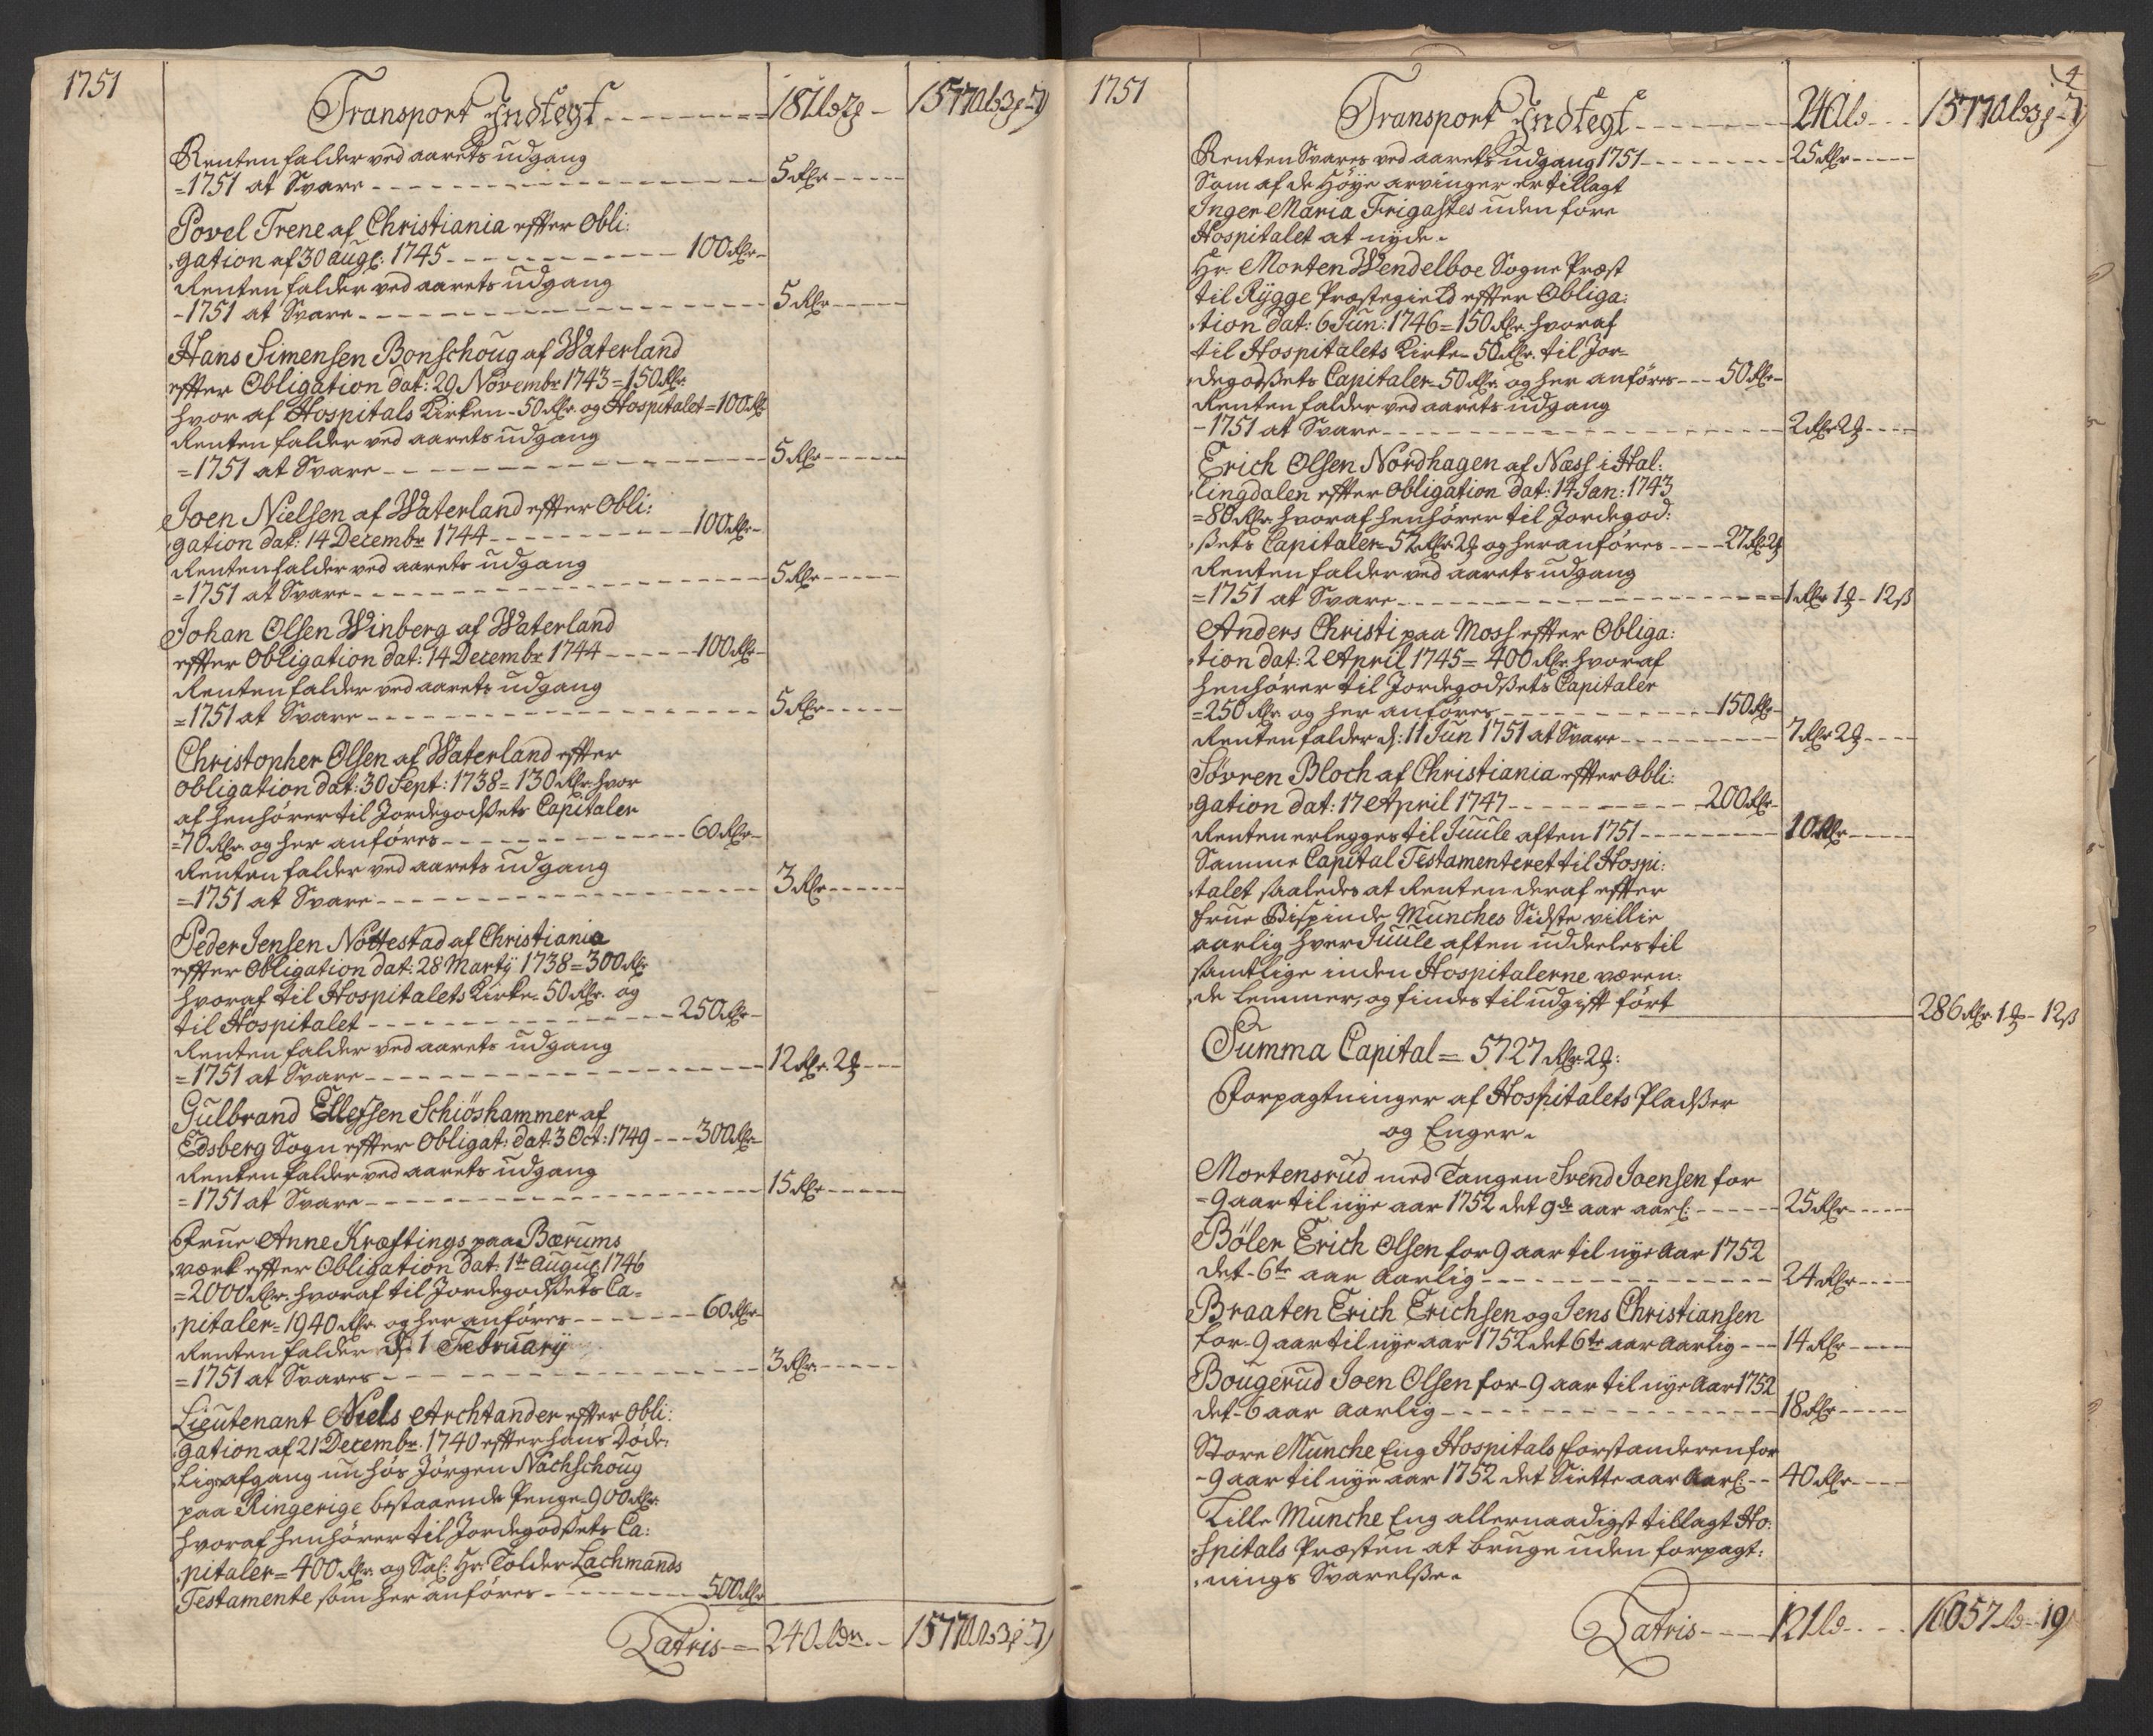 1751
Transport Indtegt - - - 181 - 1577
Renten falder ved aarets udgang
=1751 at Svare - - - 5 Rdr - - -
Povel Trene af Christiania effter Obli:
gation af 30 aug: 1745 - - - 100 Rdr -
Renten falder ved aarets udgang
-1751 at Svare - - - 5 Rdr - - -
Hans Simensen Bonschoug af Waterland
effter Obligation dat: 29 Novembr 1743 = 150 Rdr.
hvor af Hospitals Kirken - 50 Rdr. og Hospitalet = 100 Rdr
Renten falder ved aarets udgang
=1751 at Svare - - - 5 Rdr - - -
Joen Nielsen af Waterland effter Obli:
gation dat: 14 Decembr 1744 - - - 100 Rdr -
Renten falder ved aarets udgang
=1751 at Svare - - - 5 Rdr - - -
Johan Olsen Winberg af Waterland
effter Obligation dat: 14 Decembr 1744 - - - 100 Rdr -
Renten falder ved aarets udgang
=1751 at Svare - - - 5 Rdr - - -
Christopher Olsen af Waterland effter
obligation dat: 30 Sept: 1738 = 130 Rdr hvor
af henhører til Jordegodßets Capitaler
=70 Rdr. og her anføres - - - 60 Rdr -
Renten falder ved aarets udgang
=1751 at Svare - - - 3 Rdr - - -
Peder Jensen Nottestad af Christiania
effter Obligation dat: 28 Martij 1738 = 300 Rdr
hvoraf til Hospitalets Kirke - 50 Rdr. og
til Hospitalet - - - 250 Rdr -
Renten falder ved aarets udgang
=1751 at Svare - - - 12 Rdr. 2 - - -
Gulbrand Ellefsen Schiøshammer af
Edsberg Sogn effter Obligat: dat: 3 Oct: 1749 - - - 300 Rdr
Renten falder ved aarets udgang
=1751 at Svare - - - 15 Rdr - - -
Frue Anne Kræftings paa Bærums
værk effter Obligation dat: 1te August 1746
=2000 Rdr. hvoraf til Jordegodßets Ca=
pitaler = 1940 Rdr og her anføres - - - 60 Rdr -
Renten falder d. 1 February
=1751 at Svares - - - 3 Rdr. - - -
Lieutenant Niels Archtander effter Obli:
gation af 21 Decembr. 1740 effter hans døde:
lige afgang nu hos Jørgen Nachschoug
paa Ringerige bestaaende Penge = 900 Rdr.
hvoraf henhører til Jordegodßets Ca:
pitaler = 400 Rdr. og Sal: Hr: Tolder Lachmands
Testamente som her anføres - - - 500 Rdr
Latris - - 240 - - 1577
4
1751
Transport Indtegt - - - 240 - - 1577
Renten Svares ved aarets udgang 1751 - - - 25 Rdr - - -
Som af de Høye arvinger er tillagt
Inger Maria Frigastes uden fore
Hospitalet at nyde.
Hr. Morten Wendelboe Sogne Præst
til Rygge Præstegield effter Obliga:
tion dat: 6 Jun: 1746 = 150 Rdr. hvoraf
til Hospitalets Kirke - 50 Rdr. til Jor=
degodßets Capitaler - 50 Rdr. og her anføres - - - 50 Rdr -
Renten falder ved aarets udgang
-1751 at Svare - - - 2 Rdr 2 - - -
Erich Olsen Nordhagen af Næss i Hal:
lingdalen effter Obligation dat: 14 Jan: 1743
=80 Rdr. hvoraf henhører til Jordegod:
ßets Capitaler = 52 Rdr 2 og her anføres - - - 27 Rdr 2
Renten falder ved aarets udgang
=1751 at Svare - - - 1 Rdr 1 - 12 ß
Anders Christi paa Moss effter Obliga:
tion dat: 2 April 1745 = 400 Rdr hvoraf
henhører til Jordegodßets Capitaler
=250 Rdr. og her anføres - - - 150 Rdr
Renten falder d: 11 Jun 1751 at Svare - - - 7 Rdr 2 - - -
Søvren Bloch af Christiania effter Obli:
gation dat: 17 April 1747 - - - 200 Rdr -
Renten erlegges til Juule aften 1751 - - - 10 Rdr - - -
Samme Capital Testamenteret til Hospi:
talet saaledes at Renten deraf effter
Frue Bispinde Munches Sidste villie
aarlig hver Juule aften uddeeles til
samtlige inden Hospitalerne væren:
de Lemmer, og findes til udgifft ført
286 Rdr 1 - 12 ß
Summa Capital = 5727 Rdr 2:
Forpagtninger af Hospitalets Pladßer
og Enger.
Mortensrud med Tangen Svend Joensen for
-9 aar til nye aar 1752 det 9de aar aarl: - - - 25 Rdr - - -
Bøler Erich Olsen for 9 aar til nye Aar 1752
det - 6te aar Aarlig - - - 24 Rdr - - -
Braaten Erich Erichsen og Jens Christiansen
for - 9 aar til nye aar 1752 det 6te aar Aarlig - - - 14 Rdr - - -
Bougerud Joen Olsen for - 9 aar til nye Aar 1752
det - 6 aar Aarlig - - - 18 Rdr - - -
Store Munche Eng Hospitals forstanderen for
-9 aar til nye aar 1752 det Siette aar Aarl: - - 40 Rdr - - -
Lille Munche Eng allernaadigst tillagt Ho:
spitals Præsten at bruge uden forpagt:
nings Svarelße.
Latris - - - 121 - - - 16057 - 19